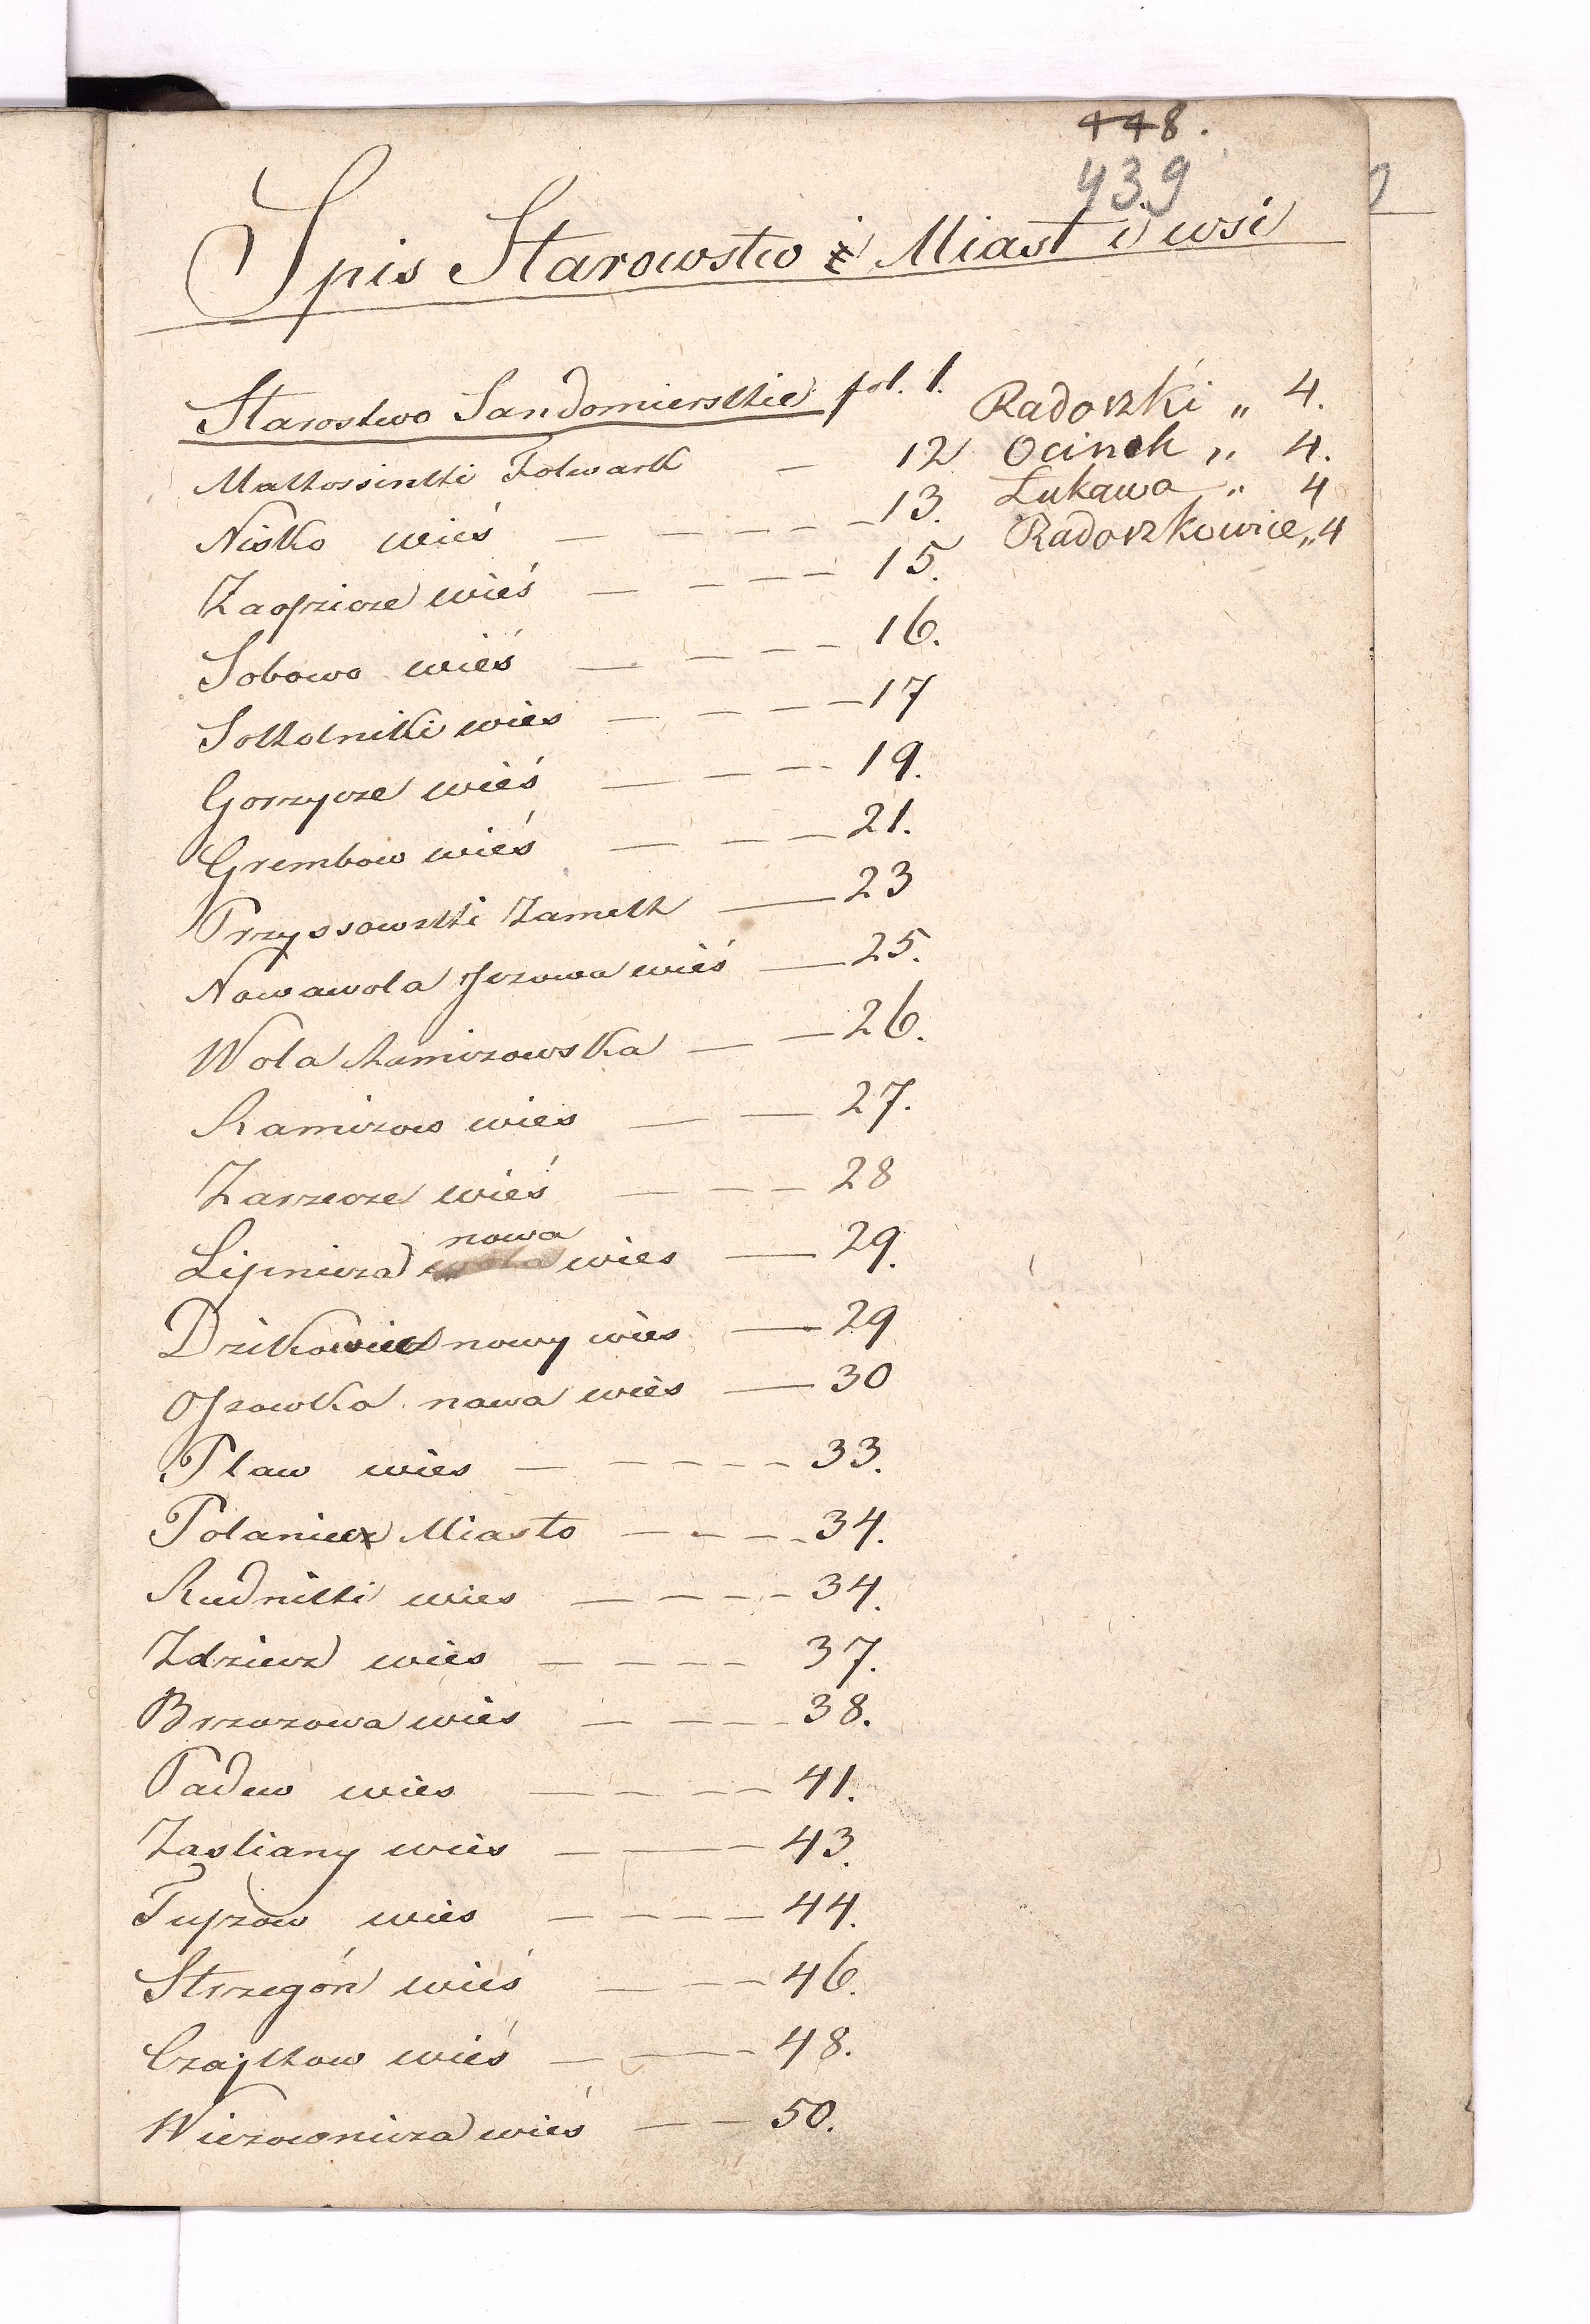 448.
439
Spis Starowstw i Miast i wsi
Starostwo Sandomierskie fol. 1.
Mokkossinski Folwark — 12
Nisko wieś — — — — 13.
Zaopzicze wieś — — — — 15.
Sobowo wieś — — — — 16.
Sokolniki wies — — — — 17
Gorzycze wieś — — — — 19.
Grembow wieś — — — 21.
Przyssowski Zamek — 23
Nowawola Jezowa wieś — 25.
Wola Ramizowska — — 26.
Ramizow wies — — 27.
Zarzecze wieś — — — 28
Lipnicza nowa wies — 29.
Dzikowiecz nowy wies — 29
Opzowka nowa wies — 30
Plaw wies — — — — 33.
Polaniecz Miasto — — — 34.
Rudniki wies — — — — 34.
Zdziecz wies — — — — 37.
Brzozowa wies — — — — 38.
Padew wies — — — — 41.
Zasliany wies — — — 43.
Tupzow wies — — — — 44.
Strzegón wieś — — — 46.
Czajkow wieś — — — 48.
Wiezownicza wieś — — 50.
Radoszki „ 4.
Ocinek „ 4.
Lukawa „ 4
Radoszkowice „ 4